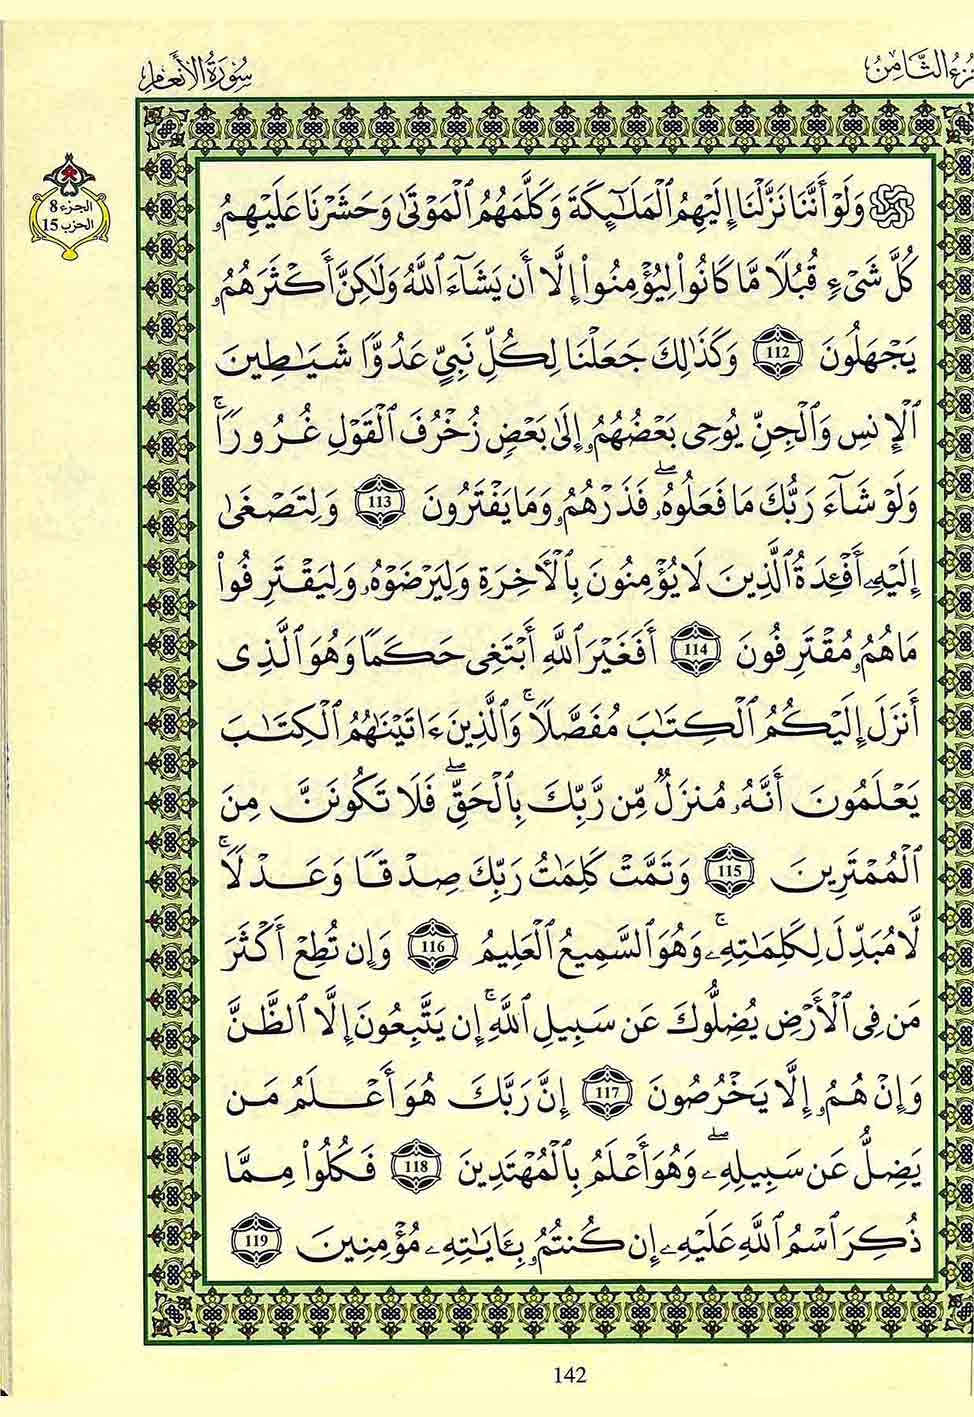 سُورَةُ الأَنعَامِ
الثَّامِنُ
الجزء 8
الحزب 15
وَلَوْ أَنَّنَا نَزَّلْنَا إِلَيْهِمُ الْمَلَٰٓئِكَةَ وَكَلَّمَهُمُ الْمَوْتَىٰ وَحَشَرْنَا عَلَيْهِمُۥ
كُلَّ شَىْءٍ قُبُلًا مَّا كَانُوا۟ لِيُؤْمِنُوا۟ إِلَّا أَن يَشَآءَ اللَّهُ وَلَٰكِنَّ أَكْثَرَهُمُۥ
يَجْهَلُونَ 112 وَكَذَٰلِكَ جَعَلْنَا لِكُلِّ نَبِيٍّ عَدُوًّا شَيَٰطِينَ
الْإِنسِ وَالْجِنِّ يُوحِى بَعْضُهُمُۥ إِلَىٰ بَعْضٍ زُخْرُفَ الْقَوْلِ غُرُورًا ۚ
وَلَوْ شَآءَ رَبُّكَ مَا فَعَلُوهُۥ ۖ فَذَرْهُمُۥ وَمَا يَفْتَرُونَ 113 وَلِتَصْغَىٰ
إِلَيْهِۦ أَفْـِٔدَةُ الَّذِينَ لَا يُؤْمِنُونَ بِالْأَخِرَةِ وَلِيَرْضَوْهُۥ وَلِيَقْتَرِفُوا۟
مَا هُمُۥ مُقْتَرِفُونَ 114 أَفَغَيْرَ اللَّهِ أَبْتَغِى حَكَمًا وَهُوَ الَّذِى
أَنزَلَ إِلَيْكُمُ الْكِتَٰبَ مُفَصَّلًا ۚ وَالَّذِينَ ءَاتَيْنَٰهُمُ الْكِتَٰبَ
يَعْلَمُونَ أَنَّهُۥ مُنزَلٌ مِّن رَّبِّكَ بِالْحَقِّ ۖ فَلَا تَكُونَنَّ مِنَ
الْمُمْتَرِينَ 115 وَتَمَّتْ كَلِمَٰتُ رَبِّكَ صِدْقًا وَعَدْلًا ۚ
لَّا مُبَدِّلَ لِكَلِمَٰتِهِۦ ۚ وَهُوَ السَّمِيعُ الْعَلِيمُ 116 وَإِن تُطِعْ أَكْثَرَ
مَن فِى الْأَرْضِ يُضِلُّوكَ عَن سَبِيلِ اللَّهِ ۚ إِن يَتَّبِعُونَ إِلَّا الظَّنَّ
وَإِنْ هُمُۥ إِلَّا يَخْرُصُونَ 117 إِنَّ رَبَّكَ هُوَ أَعْلَمُ مَن
يَضِلُّ عَن سَبِيلِهِۦ ۖ وَهُوَ أَعْلَمُ بِالْمُهْتَدِينَ 118 فَكُلُوا۟ مِمَّا
ذُكِرَ اسْمُ اللَّهِ عَلَيْهِۦ إِن كُنتُمُۥ بِـَٔايَٰتِهِۦ مُؤْمِنِينَ 119
142